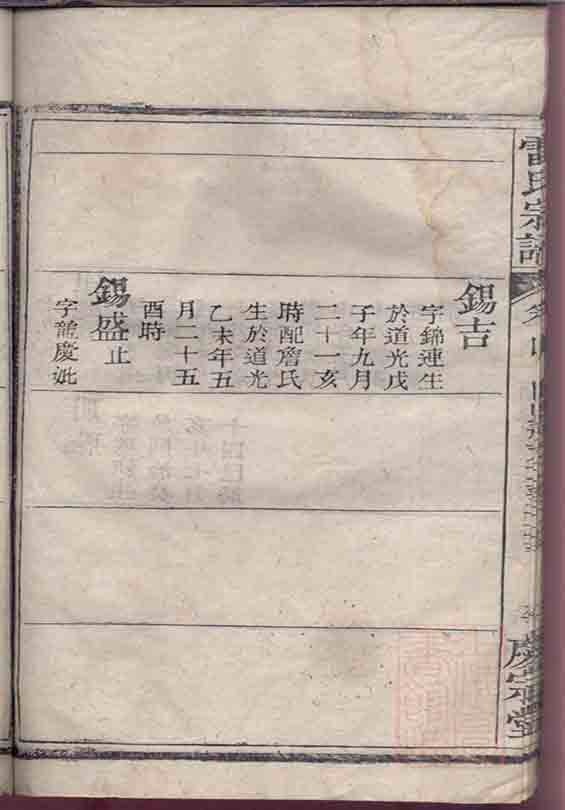 雷氏宗譜
卷四
慶宗堂
錫吉
字錦連生
於道光戊
子年九月
二十一亥
時配詹氏
生於道光
乙未年五
月二十五
酉時
錫盛止
慶妣